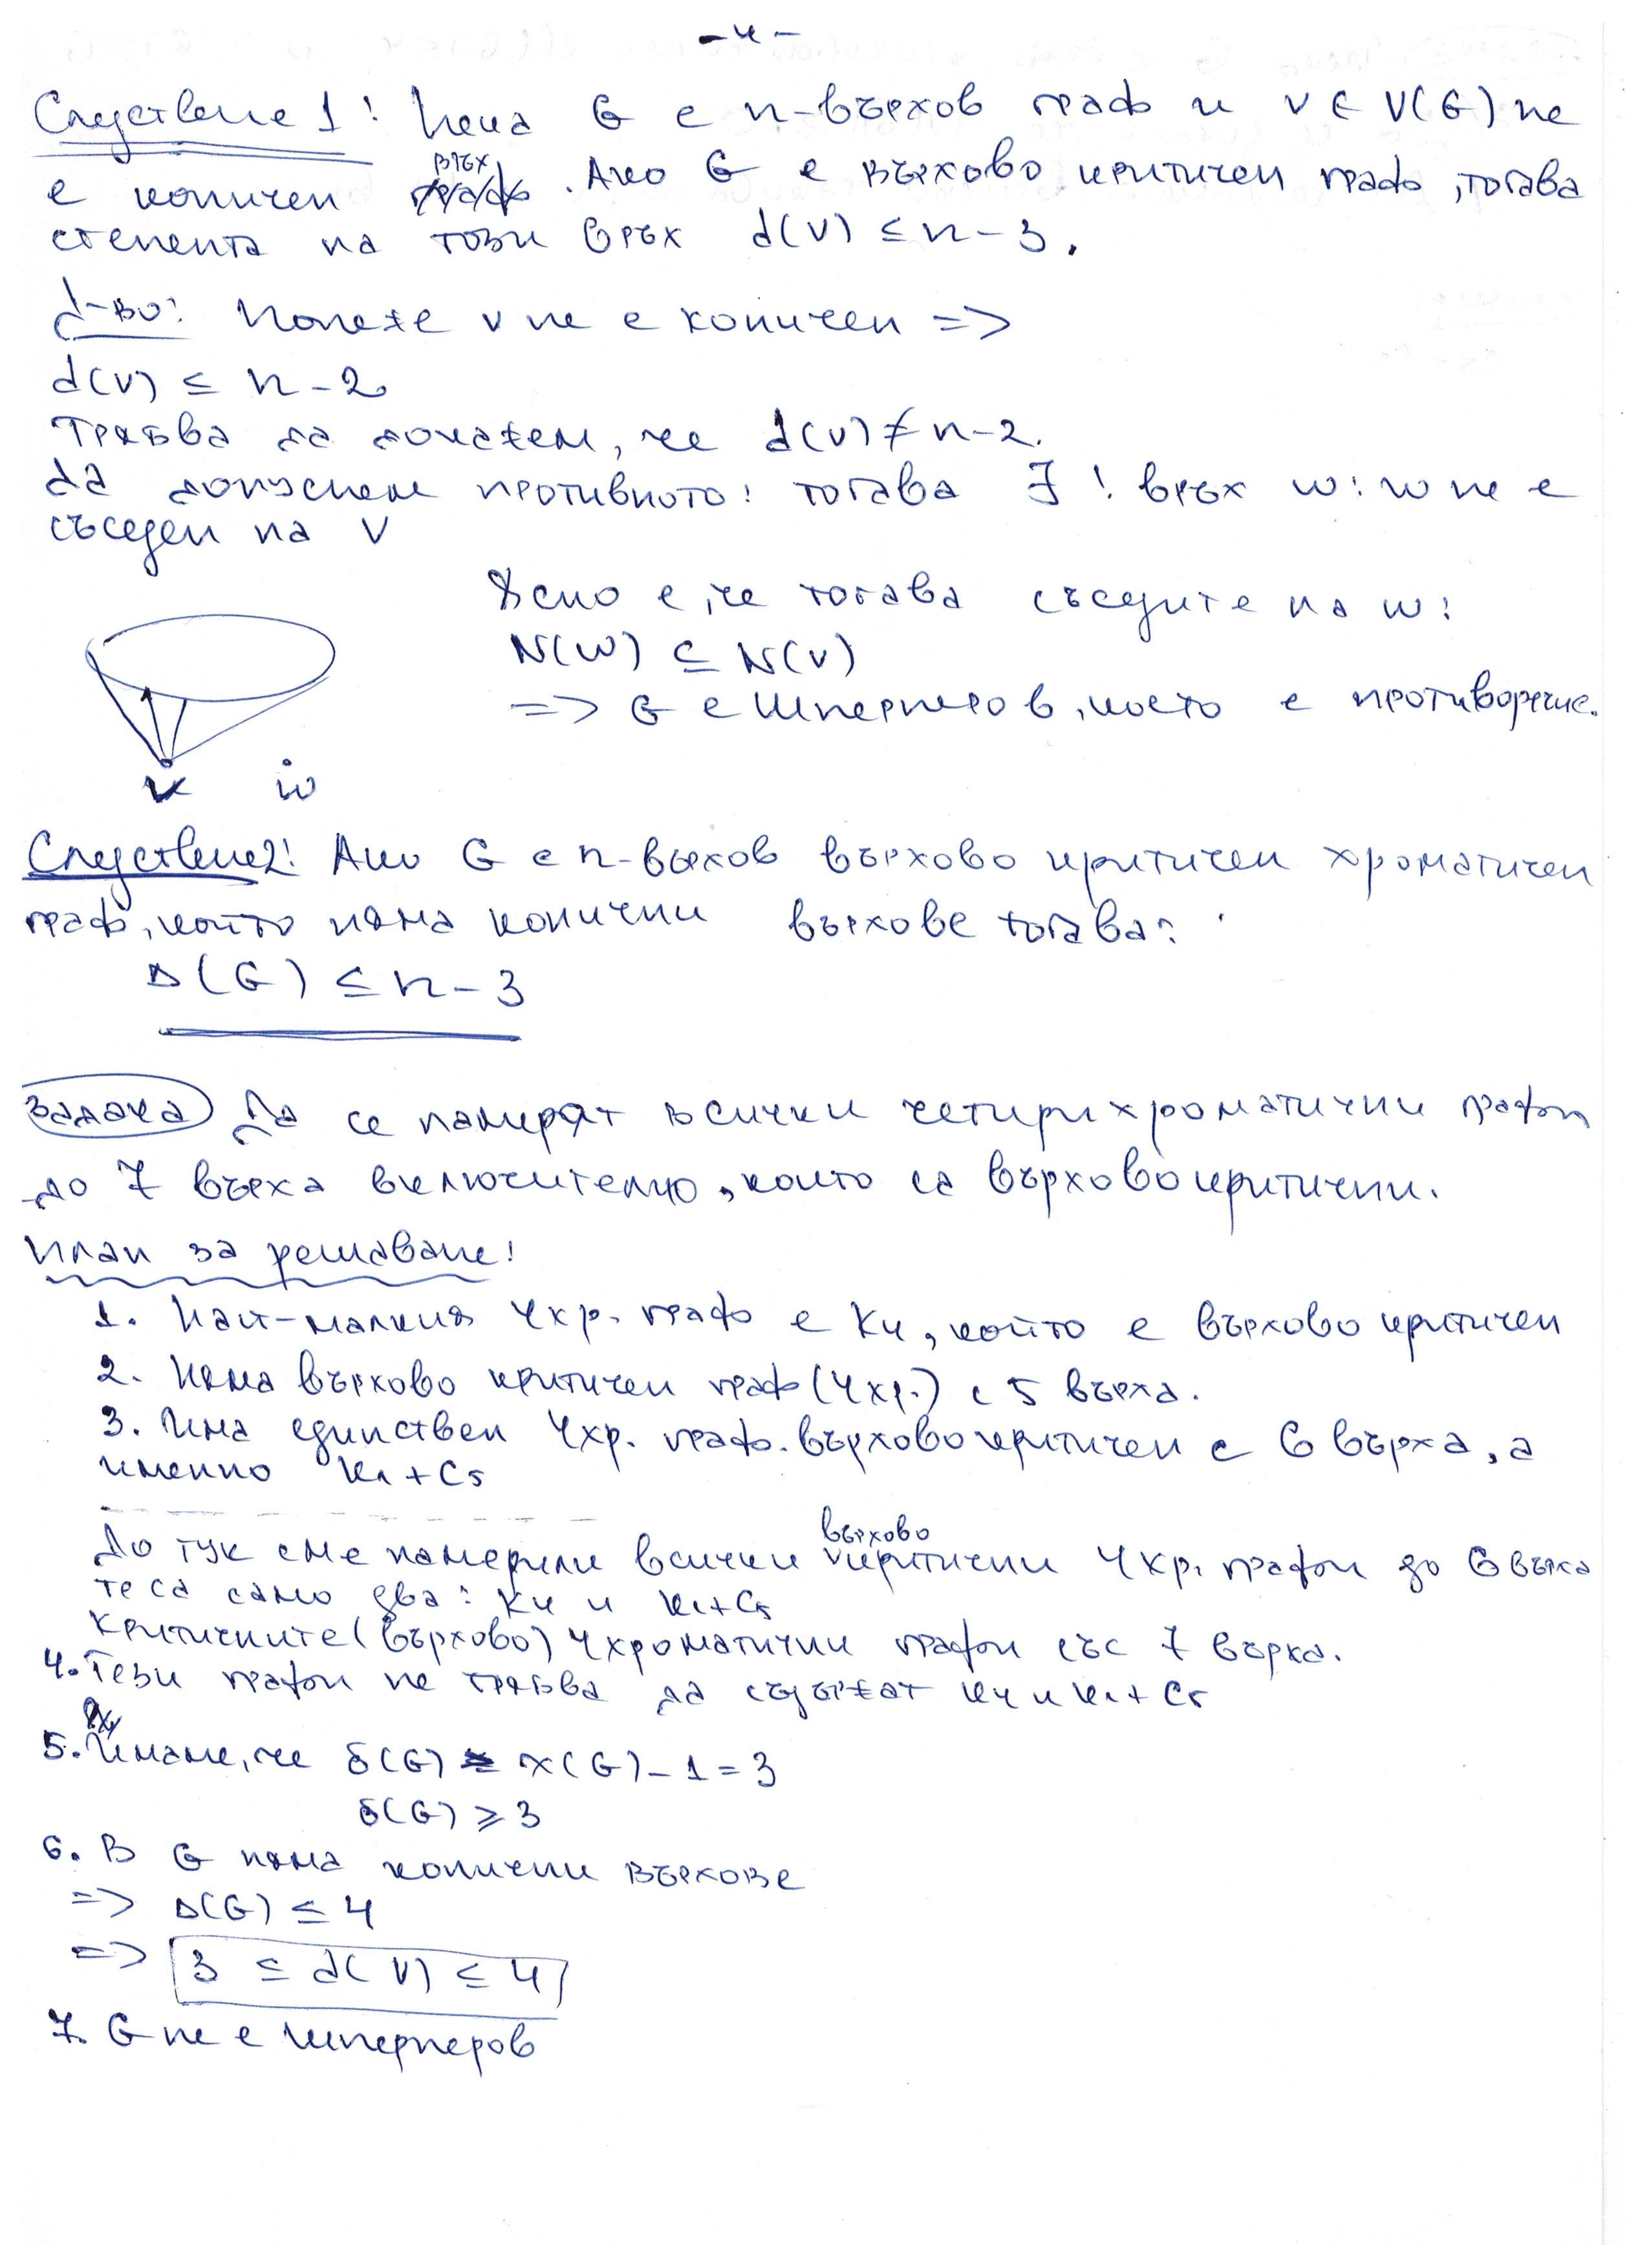 - 4 -
Следствие 1: Нека G е n-върхов граф и v ∈ V(G) не
е коничен връх. Ако G е върхово критичен граф, тогава
степента на този връх d(v) ≤ n-3.
д-во: Понеже v не е коничен =>
d(v) ≤ n-2
Трябва да докажем, че d(v) ≠ n-2.
да допуснем противното: тогава ∃! връх w: w не е
съседен на v
Ясно е, че тогава съседите на w:
N(w) ⊆ N(v)
=> G е Шпернеров, което е противоречие.
v w
Следствие 2: Ако G е n-вырхов върхово критичен хроматичен
граф, който няма конични върхове тогава:
Δ(G) ≤ n-3
Задача Да се намерят всички четирихроматични графи
до 7 върха включително, които са върхово критични.
План за решаване:
1. Най-малкия 4хр. граф е K4, който е върхово критичен
2. Няма върхово критичен граф (4хр.) с 5 върха.
3. Има единствен 4хр. граф. върхово критичен с 6 върха, а
именно K1 + C5
До тук сме намерили всички върхово критични 4хр. графи до 6 върха
те са само два: K4 и K1+C5
Критичните (върхово) 4хроматични графи със 7 върха.
4. Тези графи не трябва да съдържат K4 и K1 + C5
5. Имаме, че δ(G) ≥ χ(G) - 1 = 3
δ(G) ≥ 3
6. В G няма конични върхове
=> Δ(G) ≤ 4
=> 3 ≤ d(v) ≤ 4
7. G не е шпернеров